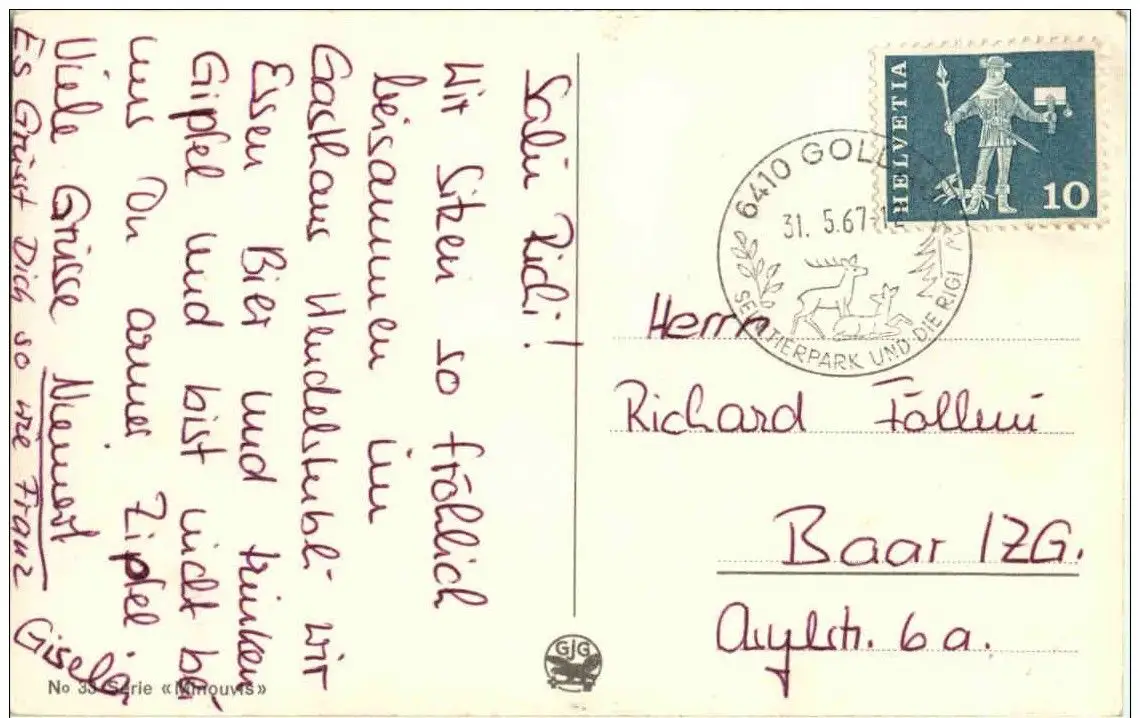 Salü Richi!
Wir Sitzen so fröhlich
beisammen im
Gasthaus Wendelstubli wir
Essen Bier und trinken
Gipfel und bist nicht bei
uns Du armer Zipfel
Viele Grüsse Niemert
Es Grüsst Dich so wie Franz
Gisella
No 33 Serie «Minouvis»
GJG
HELVETIA
10
6410 GOLDAU
31. 5.67-1
TIERPARK UND DIE RIGI
Herrn
Richard
Baar /ZG.
6a.